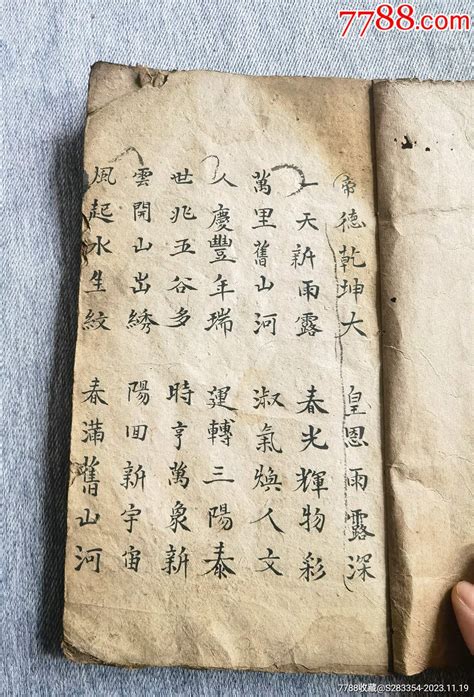 7788.com
帝德乾坤大 皇恩雨露深
一天新雨露 春光輝物彩
萬里舊山河 淑氣煥人文
人慶豐年瑞 運轉三陽泰
世兆五谷多 時亨萬象新
雲開山出綉 陽回新宇宙
風起水生紋 春滿舊山河
7788收藏@S283354-2023.11.19